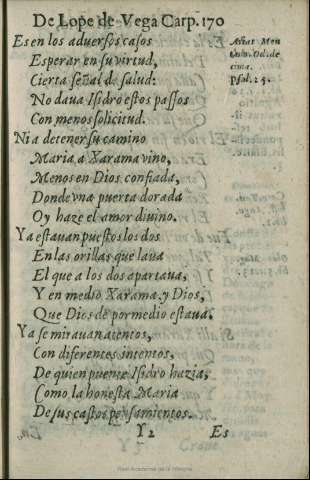 De Lope de Vega Carp. 170
Es en los aduersos casos
Esperar en su virtud,
Cierta señal de salud:
No daua Isidro estos passos
Con menos solicitud.
Ni a detener su camino
Maria a Xarama vino,
Menos en Dios confiada,
Donde vna puerta dorada
Oy haze el amor diuino.
Ya estauan puestos los dos
En las orillas que laua
El que a los dos apartaua,
Y en medio Xarama y Dios,
Que Dios de por medio estaua.
Ya se mirauan atentos,
Con diferentes intentos,
De quien puente Isidro hazia,
Como la honesta Maria
De sus castos pensamientos.
Y 2
Es
Arias Mon
Psal. 24.
Real Academia de la Historia